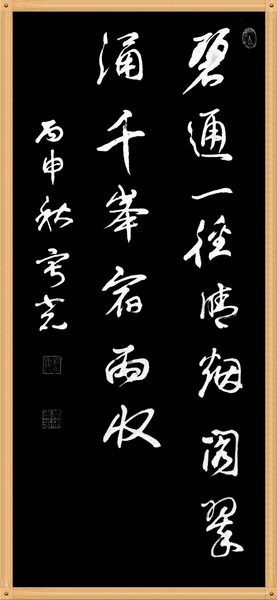 碧通一徑晴烟润翠
涌千峯宿雨收
丙申秋